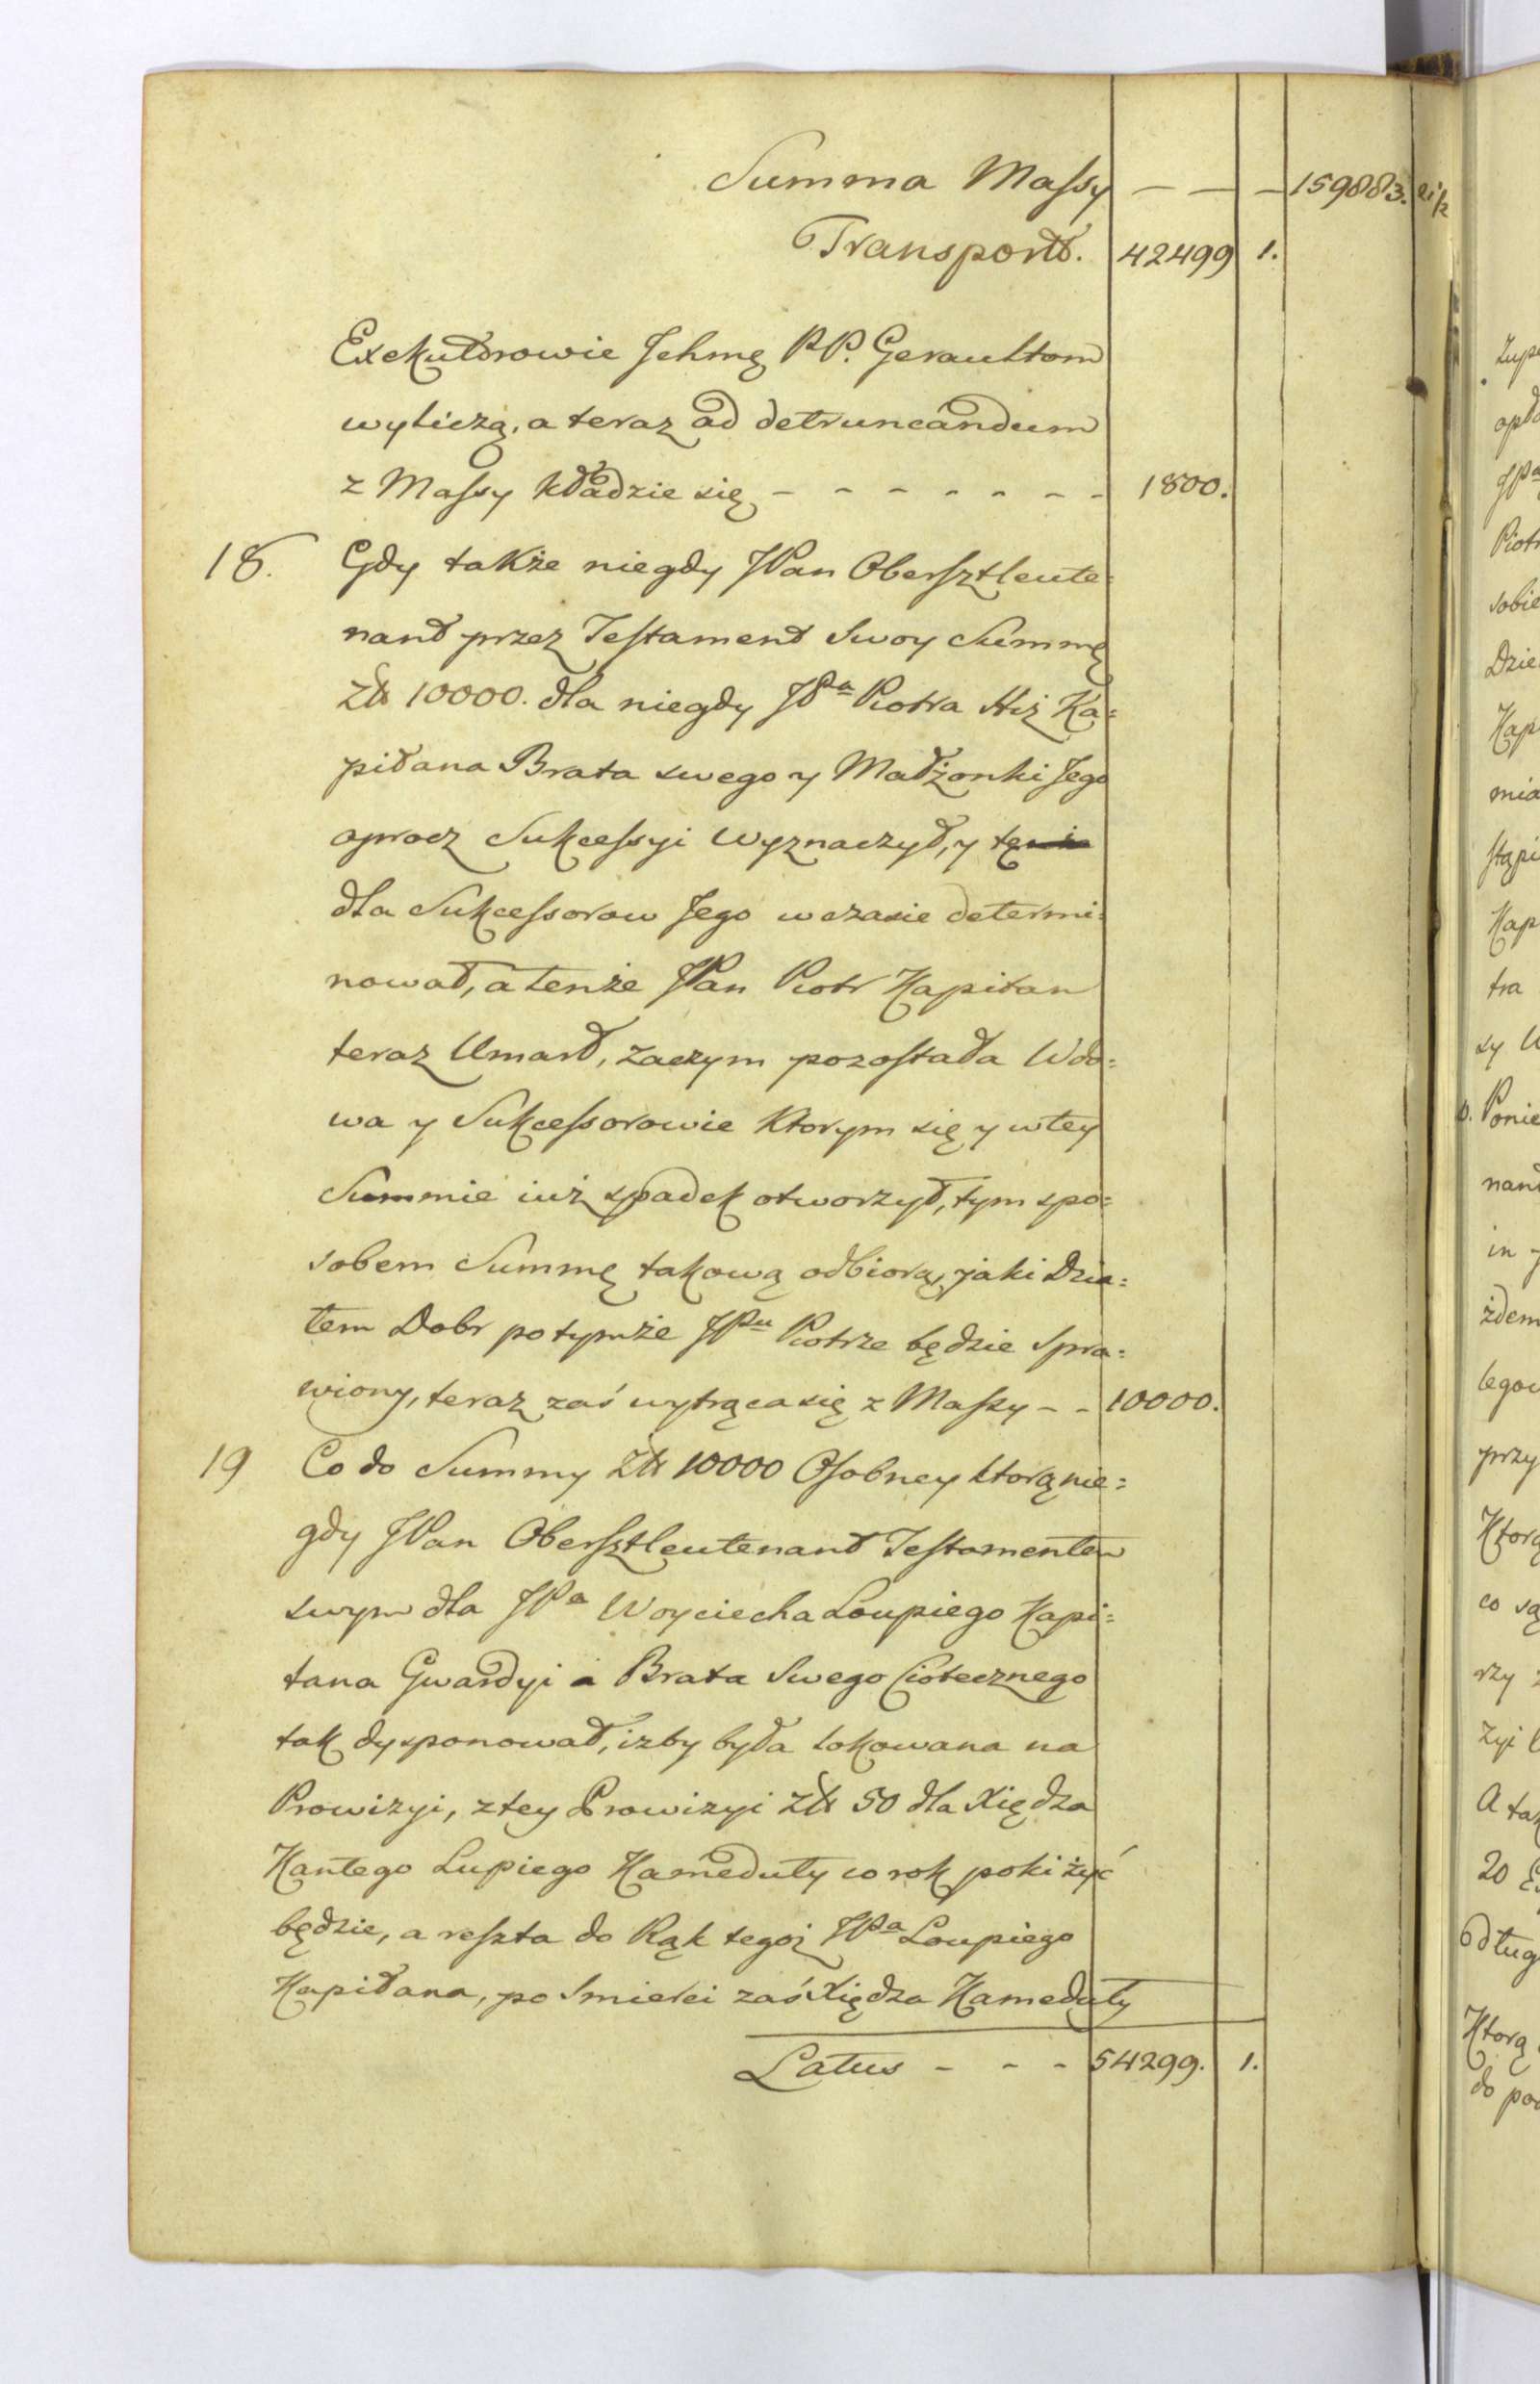 Summa Massy — — — 159883. 21½
Transport. 42499 1.
Exekutorowie Ichmę PP. Geraultom
wyliczą, a teraz ad detruncandum
z Massy kładzie się - - - - - - - 1800.
18. Gdy także niegdy JPan Obersztleute=
nant przez Testament Swoy Summę
Złł 10000. dla niegdy JPa Piotra Hiż Ka=
pitana Brata swego y Małżonki Jego
oprocz Sukcessyi wyznaczył, y tę
dla Sukcessorow Jego wczasie determi=
nował, a tenże JPan Piotr Kapitan
teraz Umarł, zaczym pozostała Wdo=
wa y Sukcessorowie Ktorym się y wtey
Summie iuż spadek otworzył, tym spo=
sobem Summę takową odbiorą, jaki Dzia=
łem Dobr potymże JPu Piotrze będzie Spra=
wiony, teraz zaś wytrąca się z Massy - - 10000.
19 Co do Summy Złł 10000 Osobney ktorą nie=
gdy JPan Obersztleutenant Testamentem
swym dla JPa Woyciecha Loupiego Kapi=
tana Gwardyi a Brata Swego Ciotecznego
tak dysponował, izby była lokowana na
Prowizyi, ztey Prowizyi Złł 50 dla Xiędza
Kantego Lupiego Kameduły co rok poki żyć
będzie, a reszta do Rąk tegoż JPa Loupiego
Kapitana, po Smierci zaś Xiędza Kameduły
Latus - - - 54299. 1.